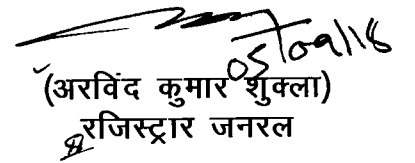 05/09/18
(अरविंद कुमार शुक्ला)
रजिस्ट्रार जनरल